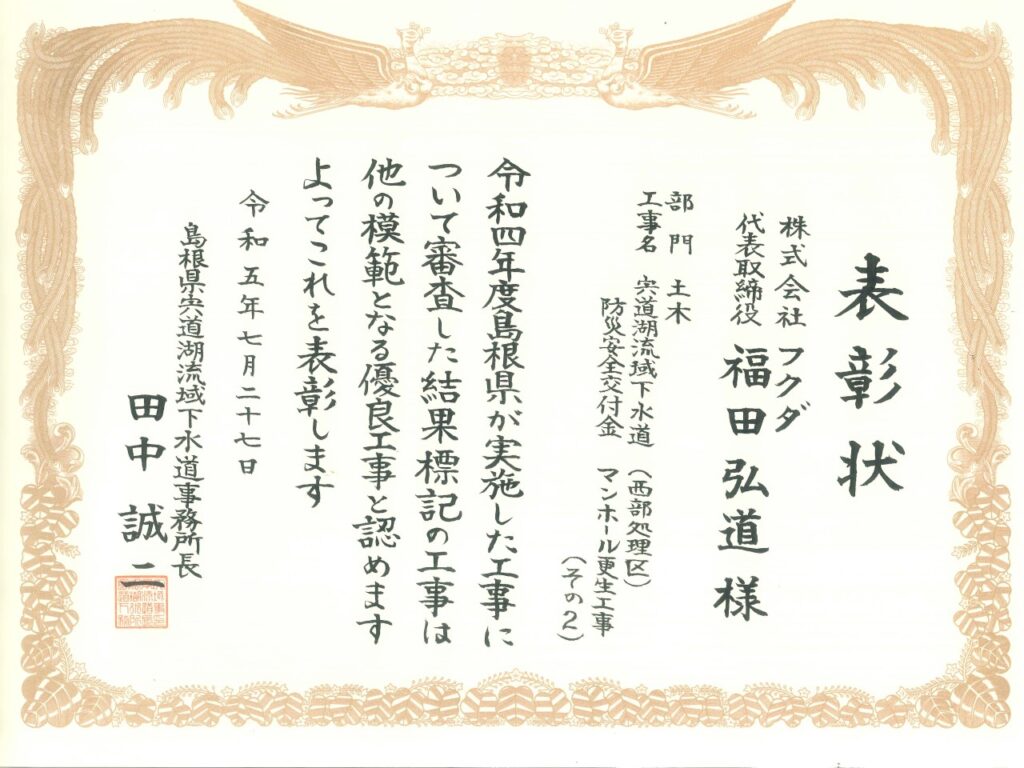 表彰状
株式会社 フクダ
代表取締役 福田弘道様
部門 土木
工事名 宍道湖流域下水道 (西部処理区)
防災安全交付金 マンホール更生工事
(その2)
令和四年度島根県が実施した工事に
ついて審査した結果標記の工事は
他の模範となる優良工事と認めます
よってこれを表彰します
令和五年七月二十七日
島根県宍道湖流域下水道事務所長
田中誠二